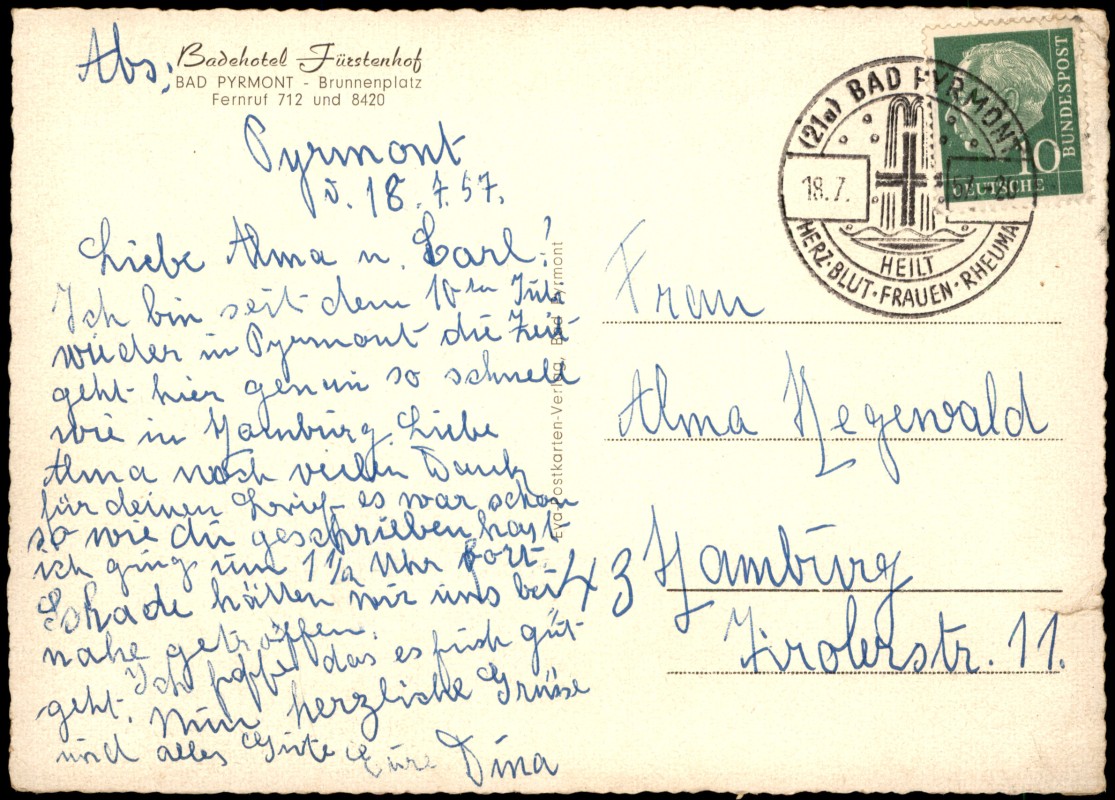 Abs: Badehotel Fürstenhof
BAD PYRMONT - Brunnenplatz
Fernruf 712 und 8420
Pyrmont
d. 18.7.57.
Liebe Alma u. Carl!
Ich bin seit dem 10ten Juli
wieder in Pyrmont die Zeit
geht hier genau so schnell
wie in Hamburg. Liebe
Alma noch vielen Dank
für deinen Brief es war schon
so wie du geschrieben hast
ich ging um 1 1/2 Uhr fort
Schade hätten wir uns bei
nahe getroffen.
Ich hoffe das es euch gut
geht. Nun herzliche Grüsse
und alles Gute Eure Dina
Eva-Postkarten-Verlag, Bad Pyrmont
(21a) BAD PYRMONT
18.7. 57.-20
HEILT
HERZ·BLUT·FRAUEN·RHEUMA
10
DEUTSCHE
BUNDESPOST
Frau
Alma Hegewald
43 Hamburg
Tirolerstr. 11.